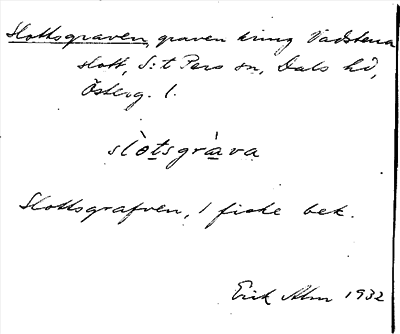 Slottsgraven, graven kring Vadstena
slott, S:t Pers sn, Dals hd,
Österg. l.
slòtsgràva
Slottsgrafven, 1 fiske bek.
Erik Alm 1932